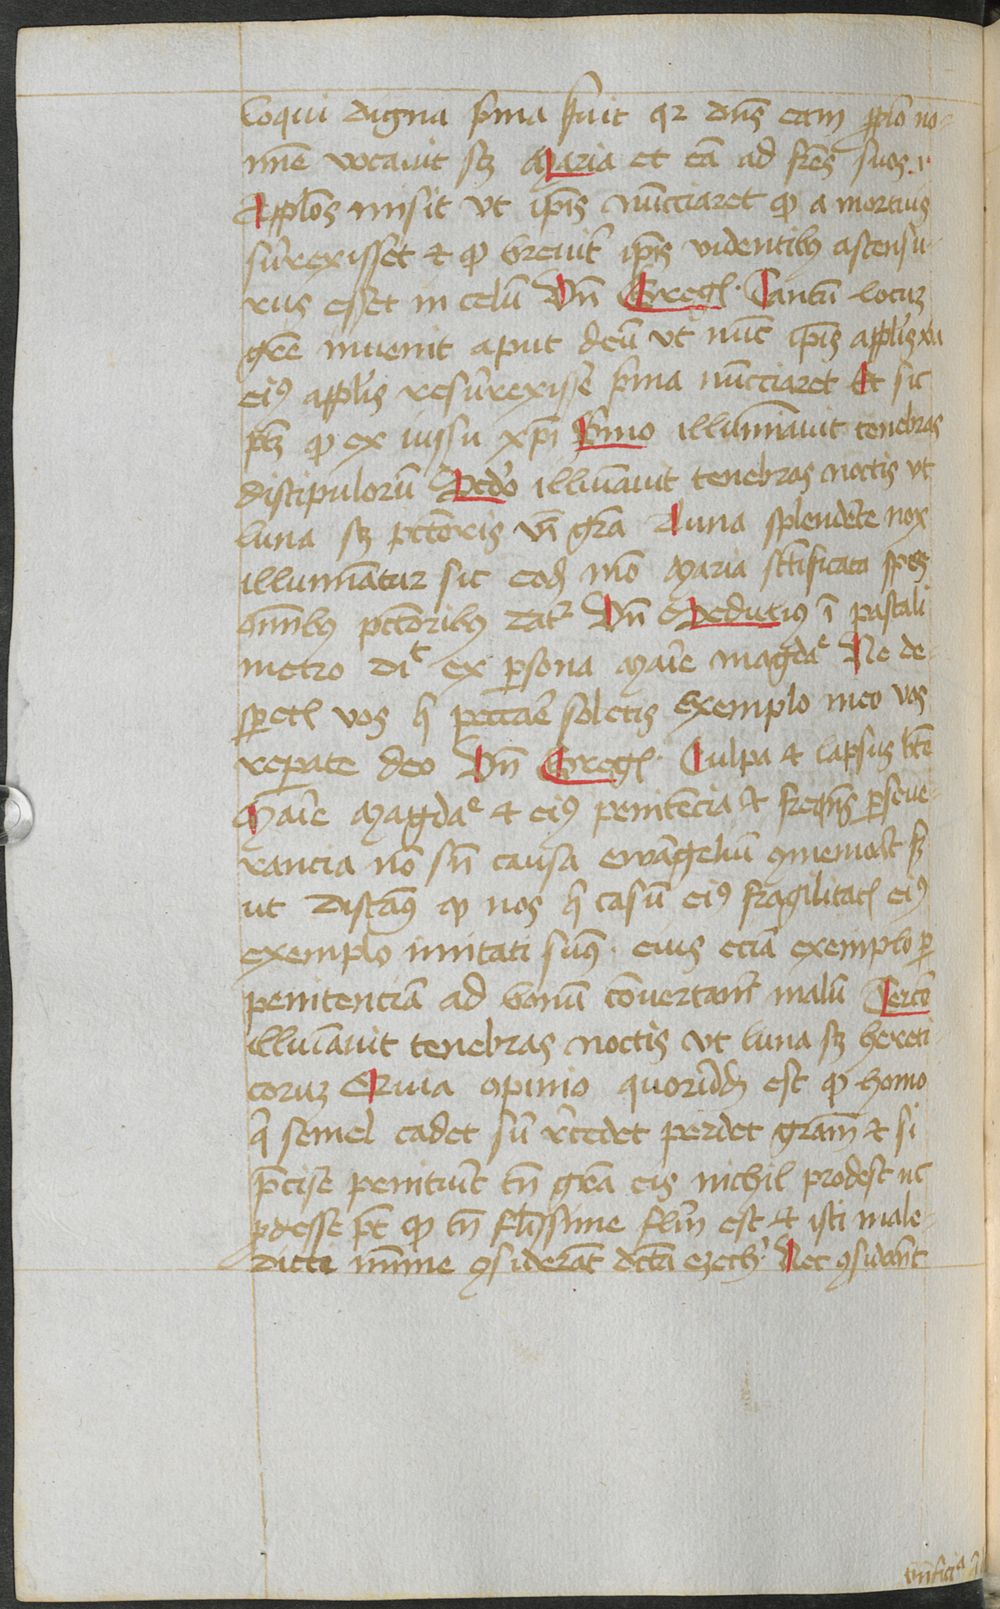 loqui digna p͛ma fuit qꝛ dn̄s eam ꝓpͦo no-
mīe vocauit sꝫ Maria et eā ad fr̄es suos .i.
Appl̄os misit vt ip̄is nūcciaret ꝙ a mortuis
surrexisset et ꝙ breuit͛ ip̄is videntibꝫ ascensu-
rus esset in celū Vn̄ Greg̛ Tantū locuꝫ
gr̄e inuenit aput deū vt nūc ip̄is appl̄is
eiꝰ appl̄is resurrexisse p͛ma nūcciaret Et sic
ptꝫ ꝙ ex iussu xp̄i P͛mo illumīauit tenebras
discipulorū Scd̄o illuīauit tenebras noctis vt
luna sꝫ pctōris vn̄ gr̄a Luna splendēte nox
illumīatur sic eod̄ mō Maria sc̄tificata spes
omībꝫ pctōribꝫ dat͛ Vn̄ Seduliꝰ ī pascali
metro dic̄ ex ꝑsona Marie magdaᵉ Ne de-
sꝑetꝭ vos q̄ peccāe soletis exemplo meo vos
reꝑate deo Vn̄ Greg̛ Culpa et lapsus bt̄e
Marie Magdaᵉ et eiꝰ penitēcia et freqn̄s ꝑseue-
rancia nō sn̄ causa ewāgeliū ꝯmemorat sꝫ
ut discamꝰ ꝙ nos q̄ casū eiꝰ fragilitatꝭ eiꝰ
exemplo imitati sumꝰ · eius eciā exemplo ꝑ
penitenciā ad bonū cōuertam͛ malū Tercō
illuīauit tenebras noctis vt luna sꝫ hereti
coruꝫ Erat opinio quorūdā est ꝙ homo
q̄ semel cadet sū recedet perdet gram̄ et si
p̄cise penituīt tn̄ gr̄a eis nichil prodest nc̄
ꝓdesse pt̄ ꝙ tn̄ fl̄issime fl̄m est et isti male-
dicte mīme ꝯsiderāt dc̄ta ezech͛ Nec ꝯsiderāt